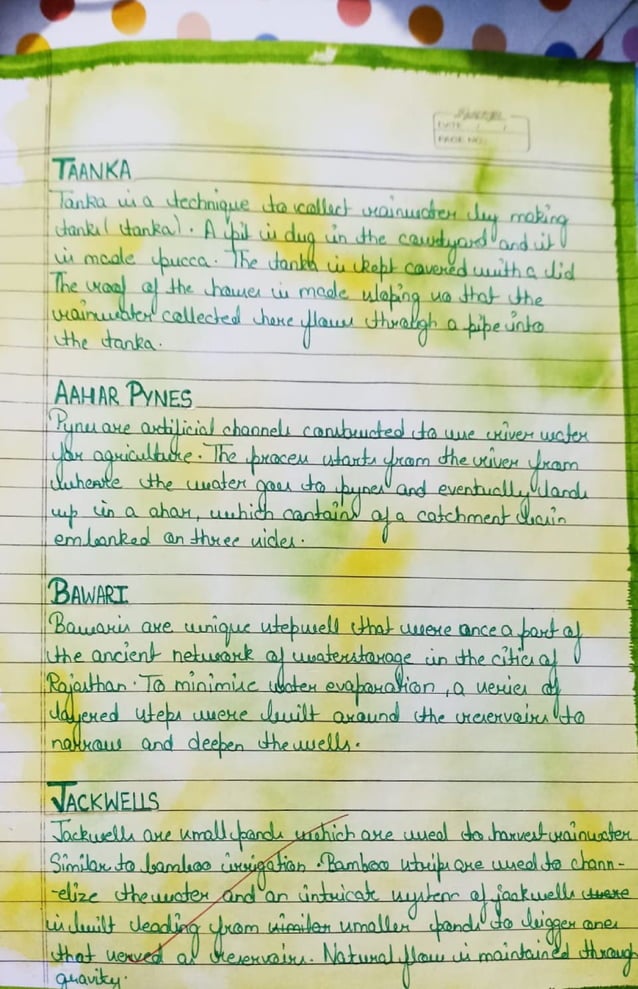 DATE / /
PAGE NO.
TAANKA
Tanka is a technique to collect rainwater by making
tanks( tanka). A pit is dug in the courtyard and it
is made pucca. The tanka is kept covered with a lid
The roof of the houses is made sloping so that the
rainwater collected here flows through a pipe into
the tanka.
AAHAR PYNES
Pynes are artificial channels constructed to use river water
for agriculture. The process starts from the river from
where the water goes to pynes and eventually lands
up in a ahar, which contains of a catchment basin
embanked on three sides.
BAWARI
Bawaris are unique stepwell that were once a part of
the ancient network of waterstorage in the cities of
Rajasthan. To minimise water evaporation, a series of
layered steps were built around the reservoirs to
narrow and deepen the wells.
JACKWELLS
Jackwells are small ponds which are used to harvest rainwater
Similar to bamboo irrigation. Bamboo strips are used to chann-
-elize the water and an intricate system of jackwells there
is built leading from similar smaller ponds to bigger ones
that served as reservoirs. Natural flow is maintained through
gravity.